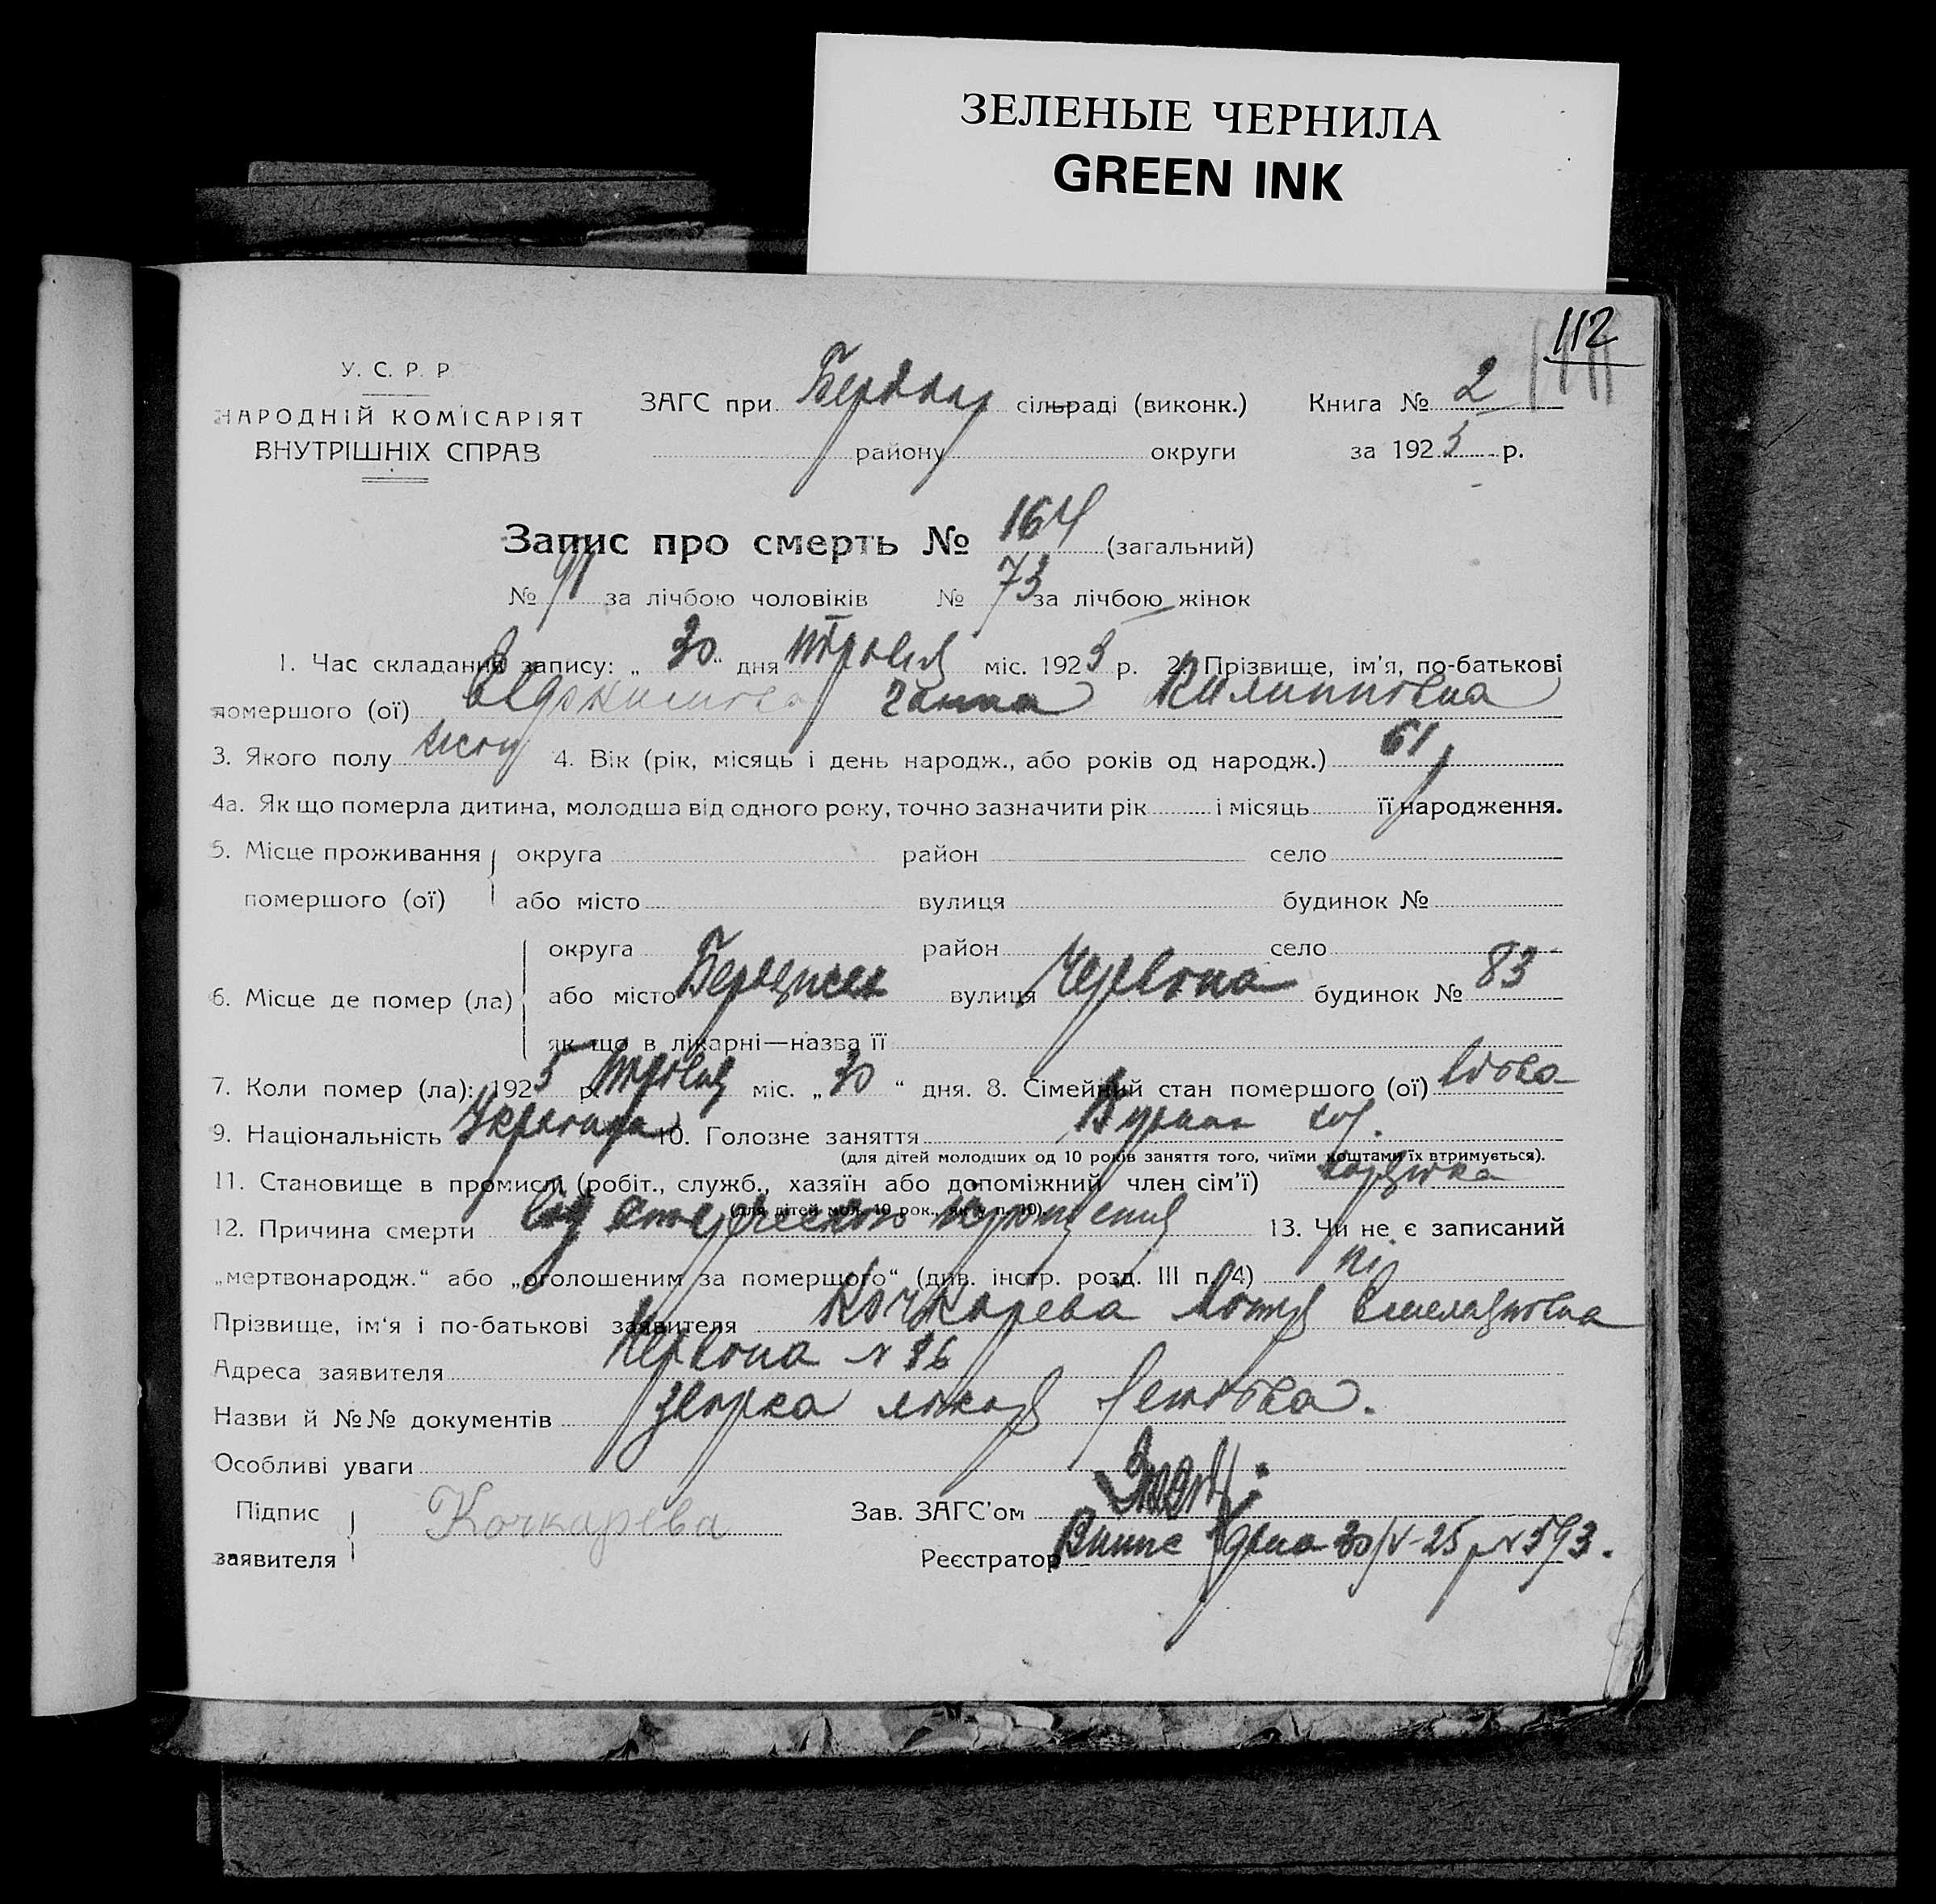 ЗЕЛЕНЫЕ ЧЕРНИЛА
GREEN INK
112
У. С. Р. Р.
НАРОДНІЙ КОМІСАРІЯТ
ВНУТРІШНІХ СПРАВ
ЗАГС при сільраді (виконк.) Книга № 2
району округи за 1925 р.
Запис про смерть № 164 (загальний)
№ 91 за лічбою чоловіків № 73 за лічбою жінок
1. Час складання запису: „ 30 “ дня травня міс. 1925 р. 2. Прізвище, ім'я, по-батькові
помершого (ої) Ганна Филипповна
3. Якого полу жін 4. Вік (рік, місяць і день народж., або років од народж.) 61 р
4а. Як що померла дитина, молодша від одного року, точно зазначити рік і місяць її народження.
5. Місце проживання округа район село
помершого (ої) або місто вулиця будинок №
округа район село
6. Місце де помер (ла) або місто вулиця Червона будинок № 83
як що в лікарні—назва її
7. Коли помер (ла): 1925 р. Травня міс. „ 30 “ дня. 8. Сімейний стан помершого (ої) вдова
9. Національність 10. Головне заняття
(для дітей молодших од 10 років заняття того, чиїми коштами їх втримується).
11. Становище в промислі (робіт., служб., хазяїн або допоміжний член сім'ї)
(для дітей мол. 10 рок., як у п. 10).
12. Причина смерти від 13. Чи не є записаний
„мертвонародж.“ або „оголошеним за померщого“ (див. інстр. розд. III п. 4) ні
Прізвище, ім'я і по-батькові заявителя Кочкарева Емельяновна
Адреса заявителя Червона № 86
Назви й №№ документів
Особливі уваги
Підпис Зав. ЗАГС'ом
Кочкарева
заявителя Реєстратор 30/V-25 р № 593.